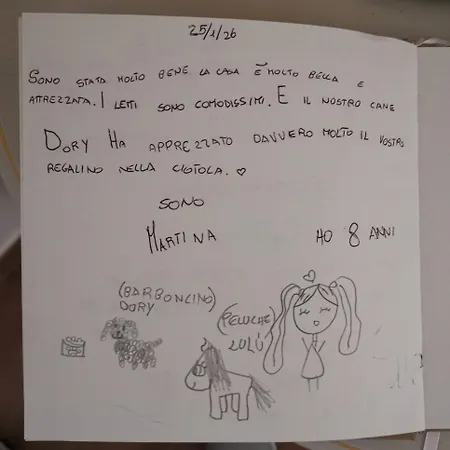 25/1/26
SONO STATA MOLTO BENE LA CASA È MOLTO BELLA E
ATTREZZATA. I LETTI SONO COMODISSIMI. E IL NOSTRO CANE
DORY HA APPREZZATO DAVVERO MOLTO IL VOSTRO
REGALINO NELLA CIOTOLA. ♡
SONO
MARTINA HO 8 ANNI
(BARBONCINO)
DORY
(PELUCHE)
LULÙ